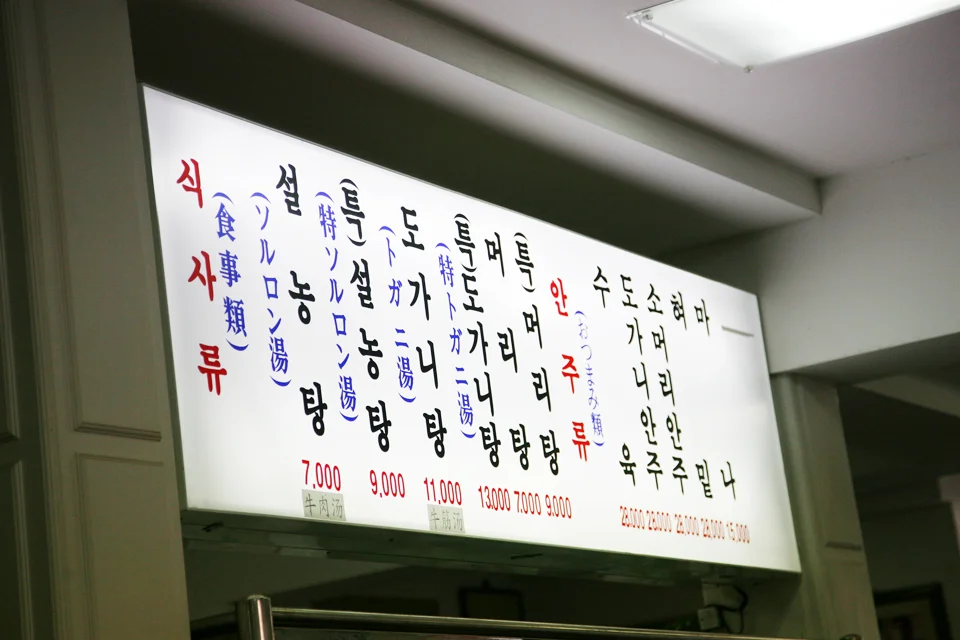 식사류
(食事類)
설농탕
7,000
牛肉汤
(ソルロン湯)
(특)설농탕
9,000
(特ソルロン湯)
도가니탕
11,000
牛筋汤
(トガニ湯)
(특)도가니탕
13,000
(特トガニ湯)
머리탕
7,000
(특)머리탕
9,000
안주류
(おつまみ類)
수육
28,000
도가니안주
28,000
소머리안주
28,000
혀밑
28,000
마나
15,000